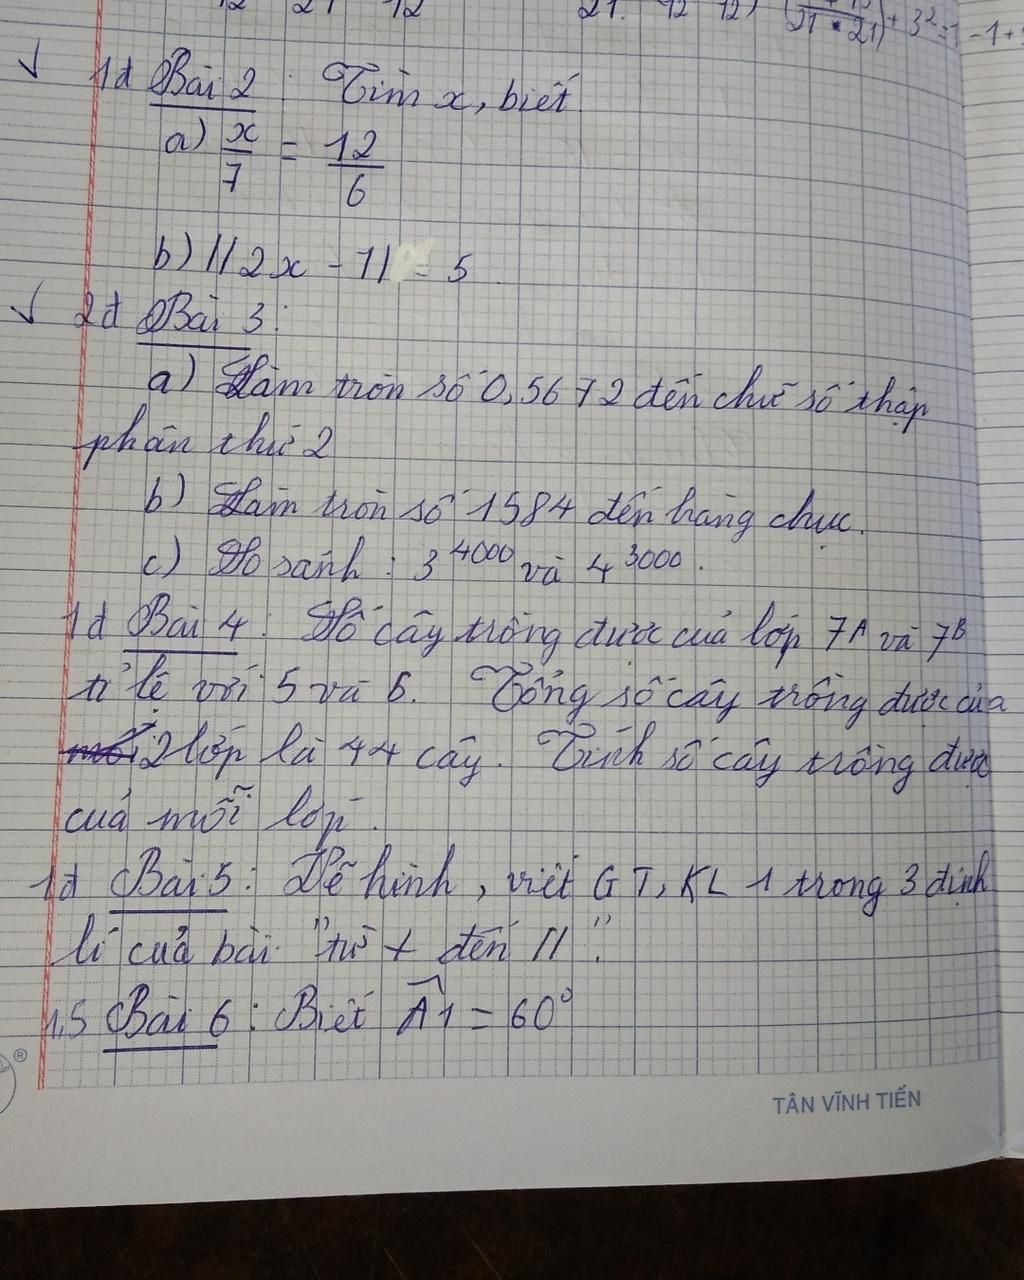 12 21 12 21. 12 12) 21 . 21) + 3² = 1 - 1 +
1đ Bài 2 : Tìm x, biết
a) x/7 = 12/6
b) ||2x - 1| = 5
2đ Bài 3 :
a) Làm tròn số 0,5672 đến chữ số thập
phân thứ 2
b) Làm tròn số 1584 đến hàng chục.
c) So sánh : 3^4000 và 4^3000.
1đ Bài 4 : Số cây trồng được của lớp 7A và 7B
tỉ lệ với 5 và 6. Tổng số cây trồng được của
mỗi 2 lớp là 44 cây. Tính số cây trồng được
của mỗi lớp.
1đ Bài 5 : Vẽ hình, viết GT, KL 1 trong 3 định
lí của bài "từ + đến //".
1,5 Bài 6 : Biết Â1 = 60°
®
TÂN VĨNH TIẾN